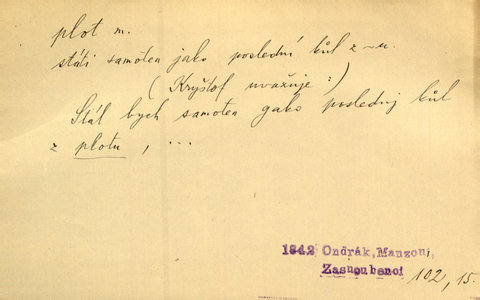 plot m.
státi samoten jako poslední kůl z ~u.
(Kryštof uvažuje:)
Stál bych samoten gako poslednj kůl
z plotu, ...
1842 Ondrák, Manzoni,
Zasnoubenci
102, 15.